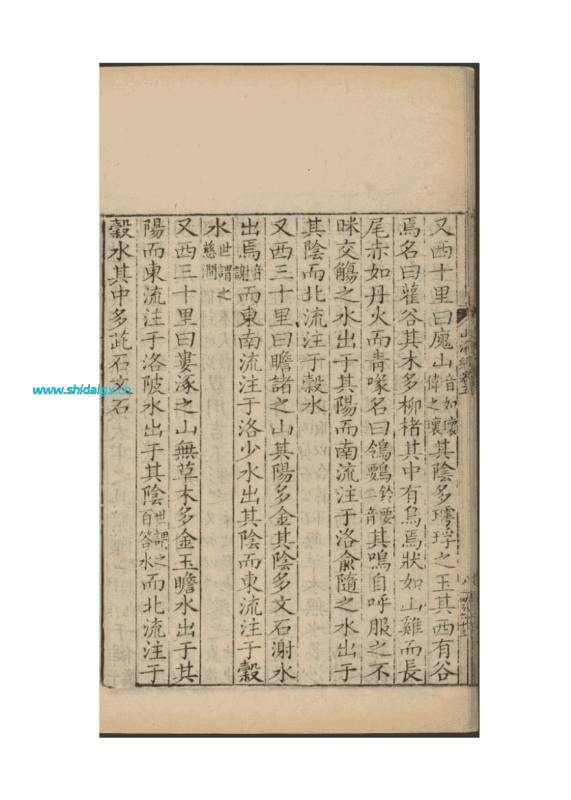 又西十里曰廆山音如瓌偉之瓌其陰多㻬琈之玉其西有谷
焉名曰雚谷其木多柳楮其中有鳥焉狀如山雞而長
尾赤如丹火而青喙名曰鴒䳩鈴要二音其鳴自呼服之不
眯交觴之水出于其陽而南流注于洛俞隨之水出于
其陰而北流注于穀水
又西三十里曰瞻諸之山其陽多金其陰多文石㴬水
出焉音謝而東南流注于洛少水出其陰而東流注于穀
水世謂之慈澗
又西三十里曰婁涿之山無草木多金玉瞻水出于其
陽而東流注于洛陂水出于其陰世謂之百答水而北流注于
穀水其中多茈石文石
山海經卷五
www.shidaigx.cn